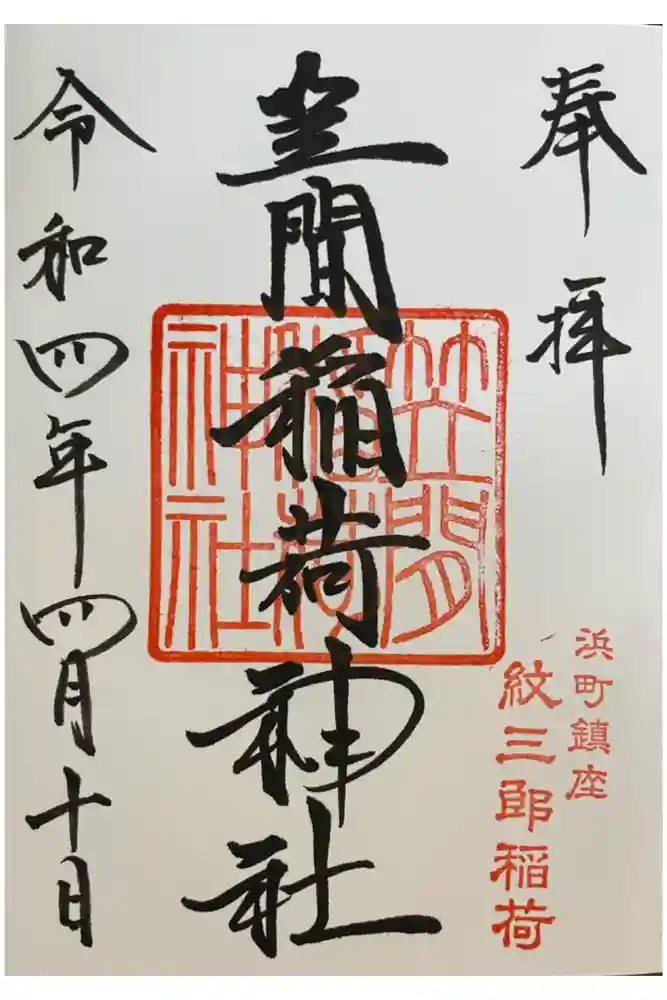 奉拝
浜町鎮座
紋三郎稲荷
笠間稲荷神社
笠間
稲荷
神社
令和四年四月十日